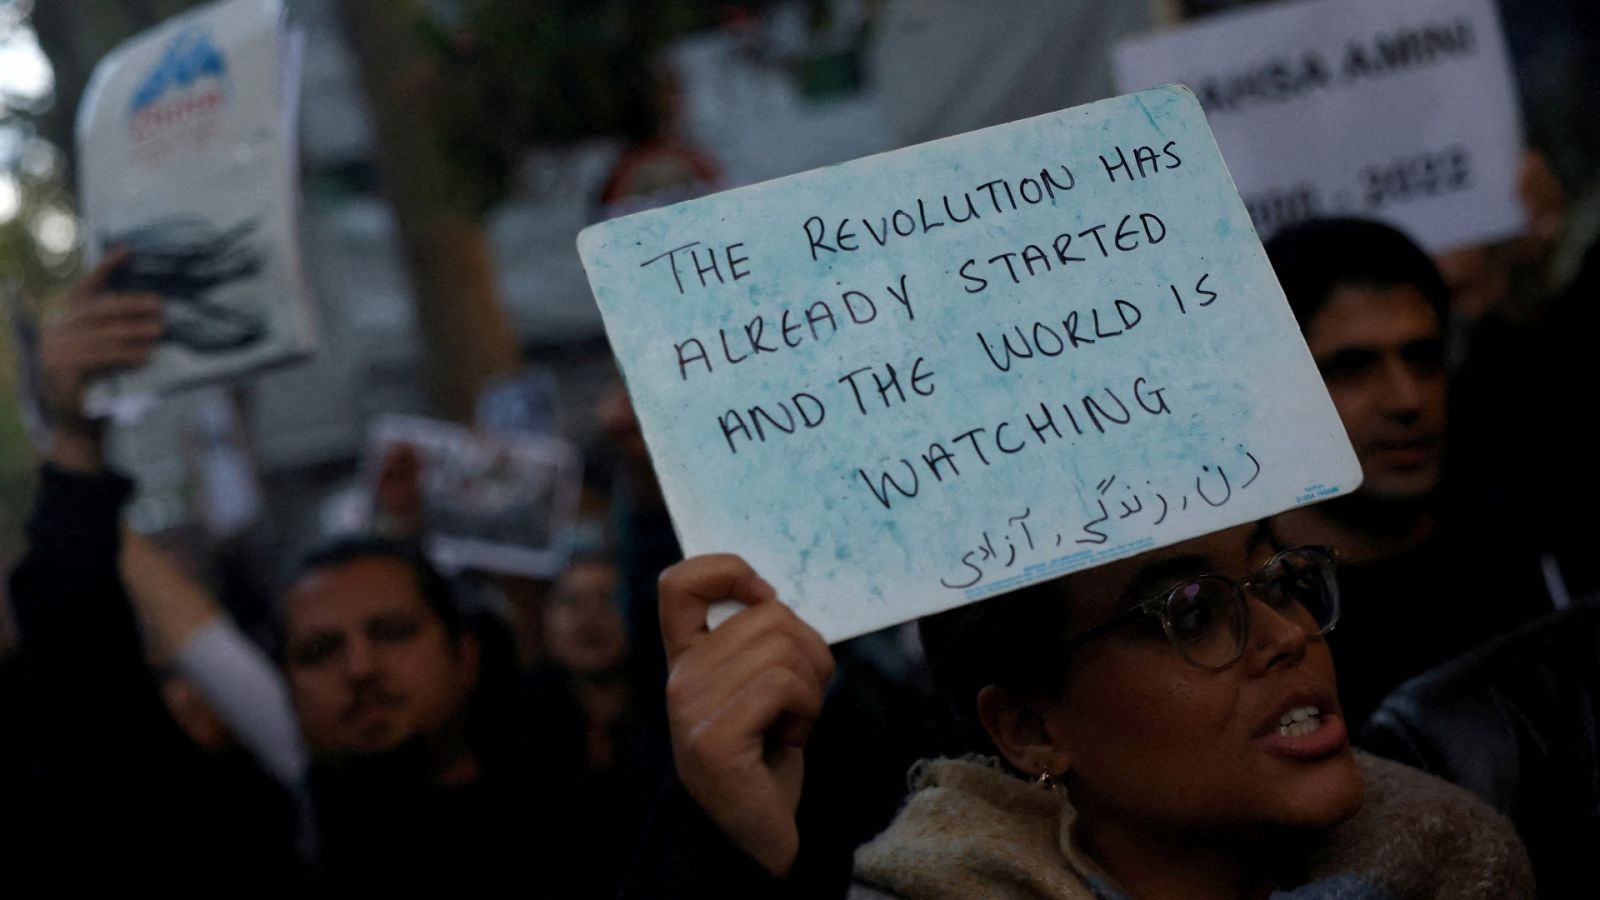 THE REVOLUTION HAS
ALREADY STARTED
AND THE WORLD IS
WATCHING
زن، زندگی، آزادی
AHSA AMINI
- 2022